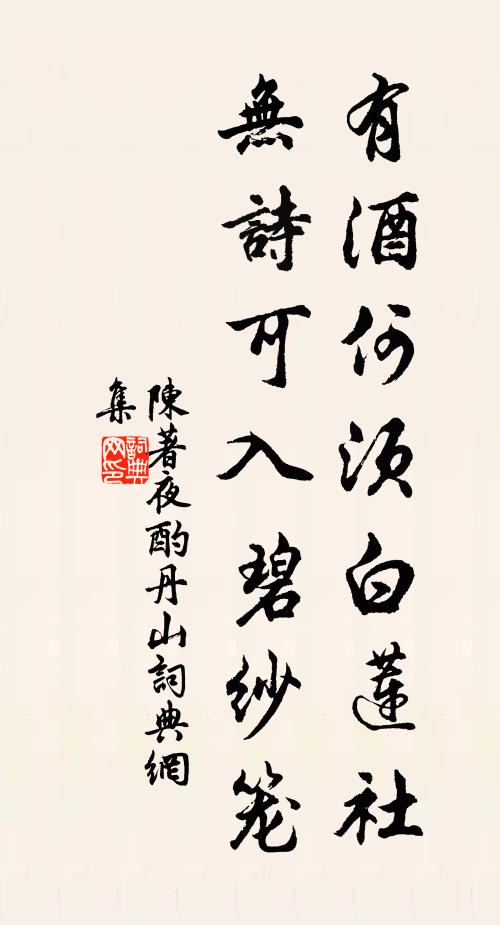 有酒何須白蓮社
無詩可入碧紗笼
陳著夜酌丹山詞典網
集
詞典网印